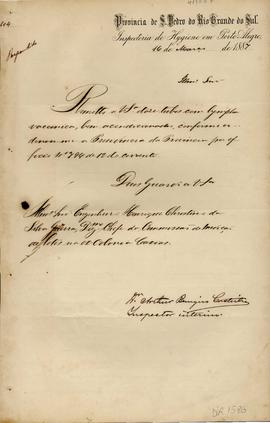 104
Provincia de S. Pedro do Rio Grande do Sul.
Inspectoria de Hygiene em Porto Alegre,
16 de Março de 1887.
Illmo Snr
Remetto a VSa doze tubos com lympha
vaccinica, bem acondicionados, conforme or
a Presidencia da Provincia por of
ficio Nº 794 de 12 do corrente
Deus Guarde a VSa
Illmo Snr Engenheiro Henrique Christino da
Silva Chefe da Commissão de
de lotes na Colonia Caxias
Dr Arthur Benigno Castilho
Inspector interino